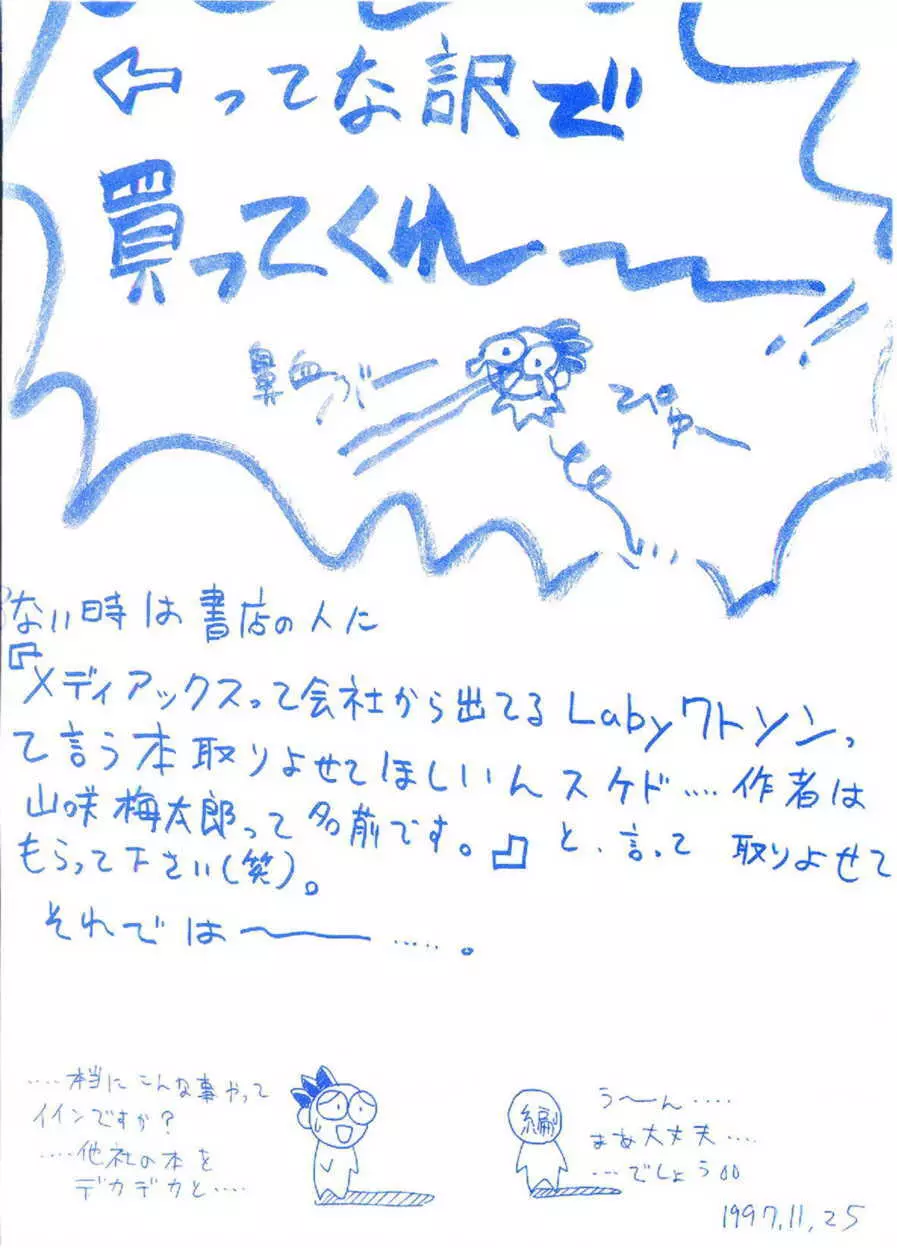 ←ってな訳で
買ってくれ〜〜!!
鼻血ブー
ぴゅ〜
ない時は書店の人に
『メディアックスって会社から出てるLabyワトソンっ
て言う本取りよせてほしいんスケド‥‥作者は
山咲梅太郎って名前です。』と、言って取りよせて
もらって下さい(笑)。
それでは〜‥‥‥。
‥‥本当にこんな事やって
イインですか?
‥‥他社の本を
デカデカと‥‥
編
う〜ん‥‥
まあ大丈夫‥‥
‥‥でしょう
1997.11.25